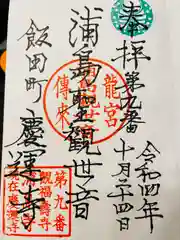 奉拝
第九番
令和四年
十月二十四日
龍宮
傳来
浦島聖観世音
飯田町
慶運寺
第九番
観福壽寺
現在慶運寺